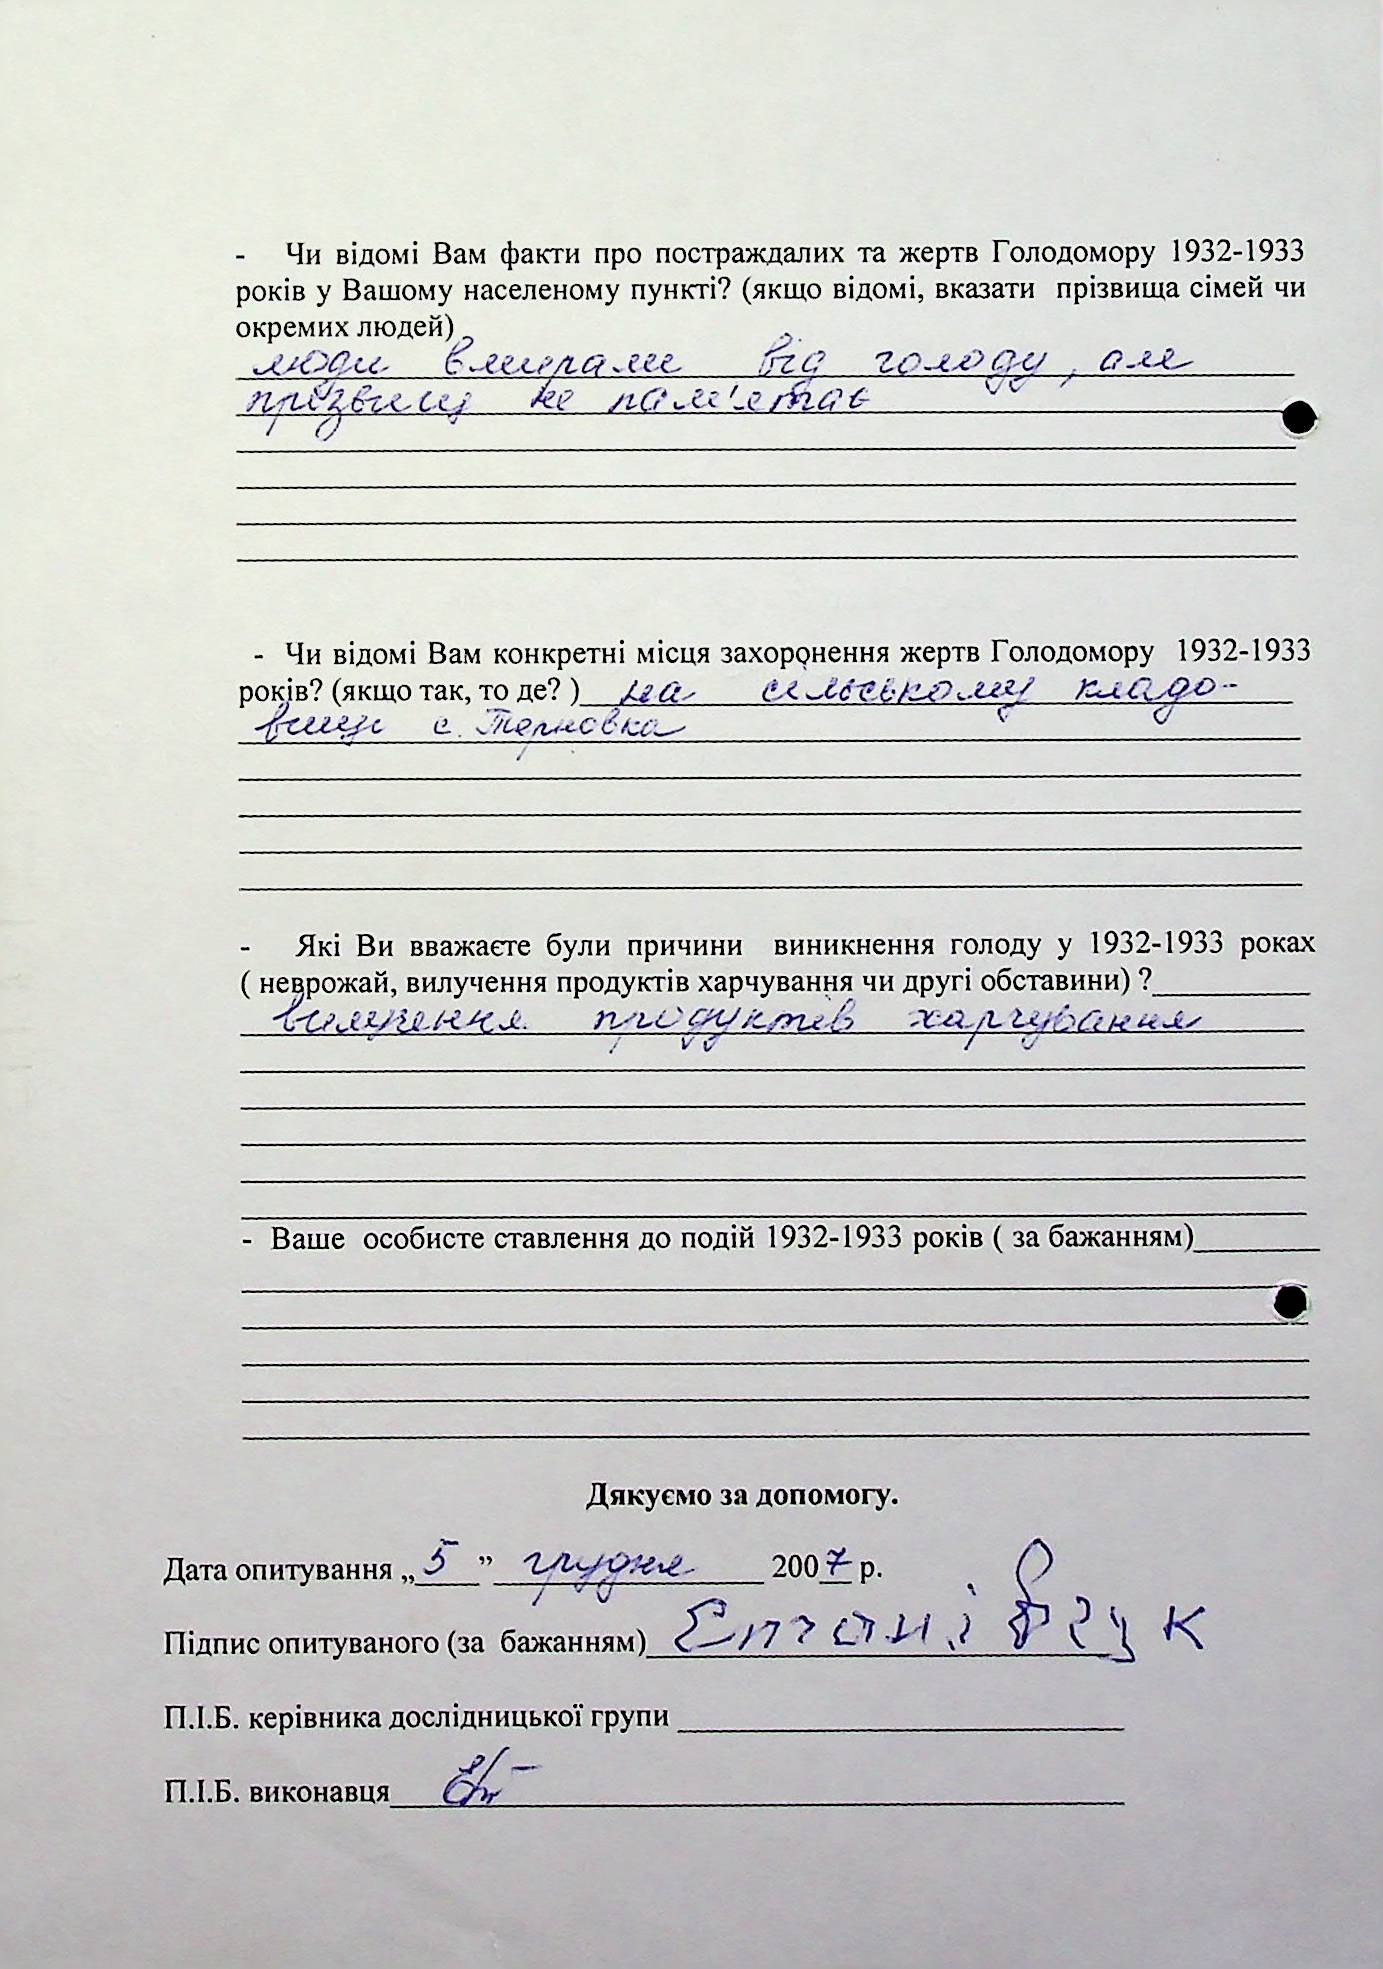 - Чи відомі Вам факти про постраждалих та жертв Голодомору 1932-1933
років у Вашому населеному пункті? (якщо відомі, вказати прізвища сімей чи
окремих людей)
люди вмирали від голоду, але
прізвищ не пам'ятає
- Чи відомі Вам конкретні місця захоронення жертв Голодомору 1932-1933
років? (якщо так, то де? ) на сільському кладо-
вищі с. Терновка
- Які Ви вважаєте були причини виникнення голоду у 1932-1933 роках
( неврожай, вилучення продуктів харчування чи другі обставини) ?
вилучення продуктів харчування
- Ваше особисте ставлення до подій 1932-1933 років ( за бажанням)
Дякуємо за допомогу.
Дата опитування „ 5 ” грудня 2007 р.
Підпис опитуваного (за бажанням)
П.І.Б. керівника дослідницької групи
П.І.Б. виконавця